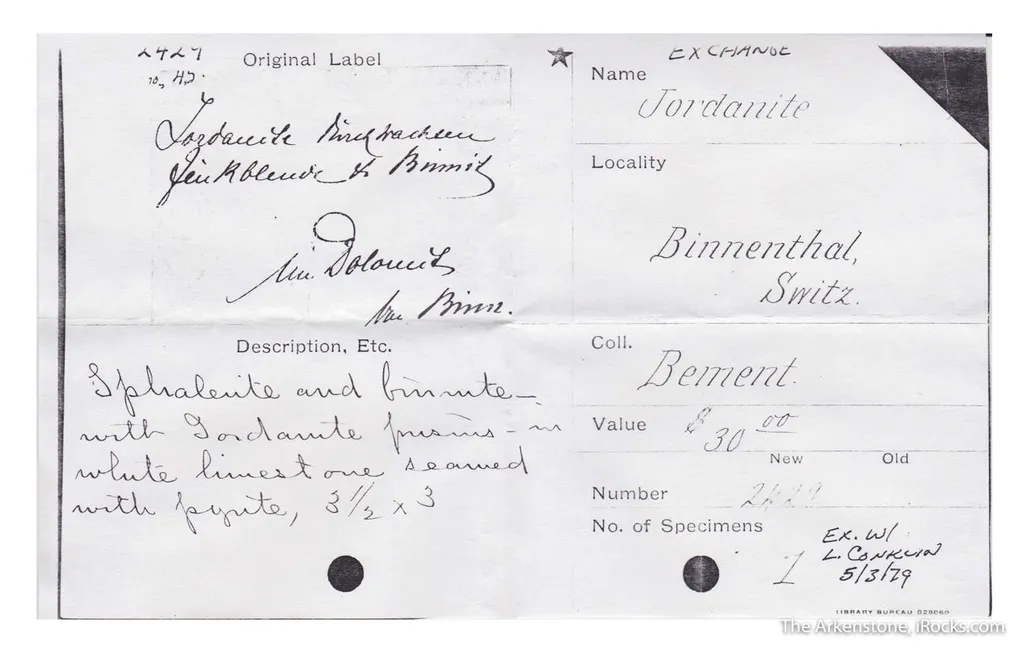 2429
Original Label
Jordanite
Zinkblende & Binnit
im Dolomit
von Binn.
Description, Etc.
Sphalerite and binnite –
with Jordanite prisms – in
white limestone seamed
with pyrite, 3 1/2 x 3
EXCHANGE
Name
Jordanite
Locality
Binnenthal,
Switz.
Coll.
Bement.
Value $ 30 00
New Old
Number 2429
No. of Specimens
1
EX. W/
L. CONKLIN
5/3/79
LIBRARY BUREAU
The Arkenstone, iRocks.com